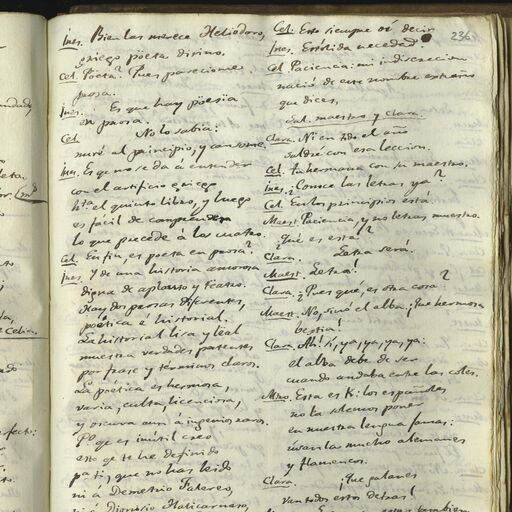 236
Ines. Bien las merece Heliodoro,
griego poeta divino.
Cel. Poeta? Pues pareciome
prosa.
Ines. Es que hay poesia
en prosa.
Cel. No lo sabia:
miré al principio, y cansome.
Ines. Es que no se da a entender
con el artificio griego
hta el quinto libro, y luego
es facil de comprender
lo que precede á los cuatro.
Cel. En fin, es poeta en prosa?
Ines. Y de una historia amorosa
digna de aplauso y teatro.
Hay dos prosas diferentes,
poética é historial.
La historial lisa y leal
muestra verdades patentes,
por frase y terminos claros.
La poética es hermosa,
varia, culta, licenciosa,
y oscura aun á ingenios raros.
Po qe es inutil creo
esto qe te he definido
pa ti, que no has leido
ni á Demetrio Falereo,
ni á Dionisio Halicarnaso,
Cel. Esto siempre oí decir
Ines. necedad
Cel. Paciencia: mi indiscrecion
nació de ese nombre extraño
que dices.
Sal. maestro y Clara.
Clara. Ni en todo el año
saldré con esa leccion.
Cel. Tu hermana con su maestro.
Ines. ¿Conoce las letras ya?
Cel. En los principios está.
Maest. Paciencia, y no letras muestro.
¿Qué es esta?
Clara. Letra será.
Maest. Letra!
Clara. ¿Pues qué, es otra cosa?
Maest. No, sinó el alba: ¡que hermosa
bestia!
Clara. Ah! sí, ya, ya, ya, ya:
el alba debe de ser
cuando andaba entre las coles.
Mtro. Esta es K: los españoles
no la solemos poner
en nuestra lengua jamas:
úsanla mucho alemanes
y flamencos.
Clara. ¡Que galanes
van todos estos detras!